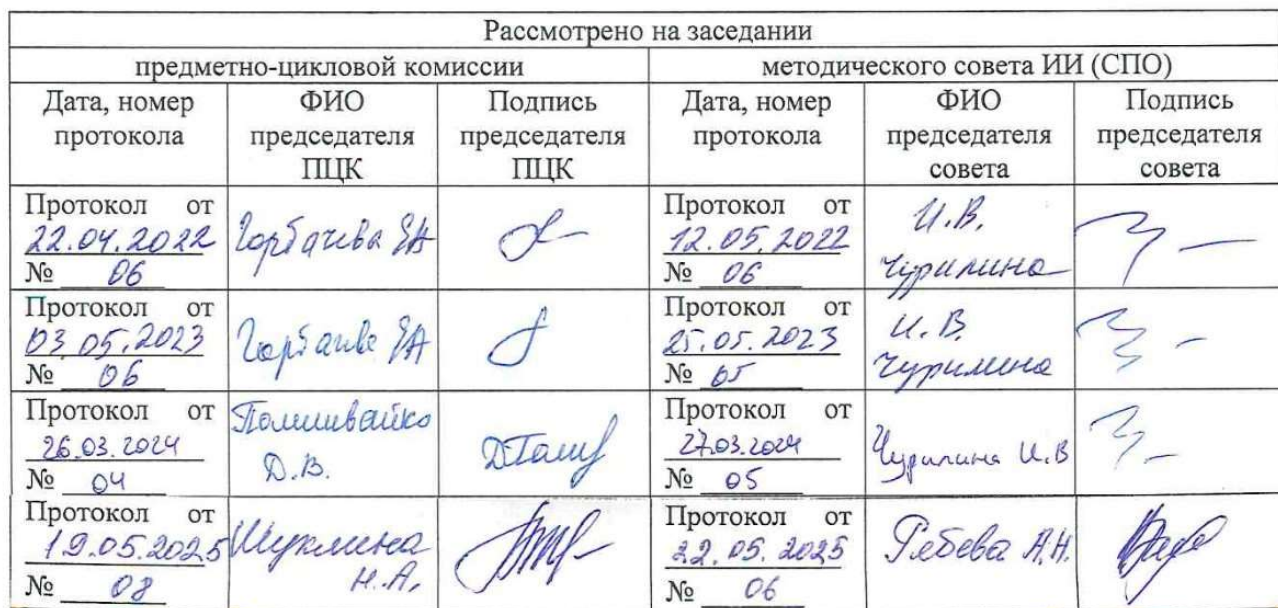 Рассмотрено на заседании
предметно-цикловой комиссии
методического совета ИИ (СПО)
Дата, номер протокола
ФИО председателя ПЦК
Подпись председателя ПЦК
Дата, номер протокола
ФИО председателя совета
Подпись председателя совета
Протокол от
22.04.2022
№ 06
Горбачева ЕА
Протокол от
12.05.2022
№ 06
И.В.
Чурилина
Протокол от
03.05.2023
№ 06
Горбачева ЕА
Протокол от
25.05.2023
№ 05
И.В.
Чурилина
Протокол от
26.03.2024
№ 04
Д.В.
Протокол от
27.03.2024
№ 05
Чурилина И.В
Протокол от
19.05.2025
№ 08
Шуклина
Н.А.
Протокол от
22.05.2025
№ 06
А.Н.